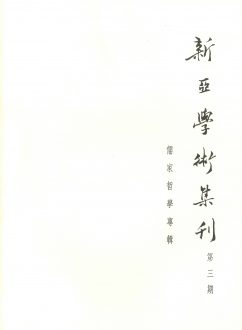 新亞學術集刊
第三期
儒家哲學專輯